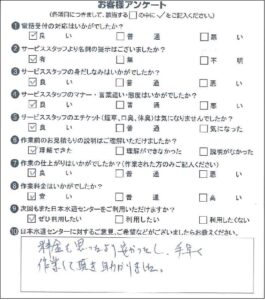 お客様アンケート
(各項目につきまして、該当する□の中に✓をご記入ください。)
❶電話受付の対応はいかがでしたか?
☑良い □普通 □悪い
❷サービススタッフより名刺の提示はございましたか?
☑有 □無 □不明
❸サービススタッフの身だしなみはいかがでしたか?
☑良い □普通 □悪い
❹サービススタッフのマナー・言葉遣い・態度はいかがでしたか?
☑良い □普通 □悪い
❺サービススタッフのエチケット(煙草、口臭、体臭)は気になりませんでしたか?
☑良い □普通 □気になった
❻作業前のお見積もりの説明はご理解いただけましたか?
☑理解できた □理解ができなかった □説明がなかった
❼作業の仕上がりはいかがでしたか?(作業された方のみご記入ください)
☑良い □普通 □悪い
❽作業料金はいかがでしたか?
☑安い □普通 □高い
❾次回もまた日本水道センターをご利用いただけますか?
☑ぜひ利用したい □利用したい □利用したくない
❿日本水道センターに対するご意見、ご希望などがございましたらお書きください。
料金も思ったより安かったし、手早く
作業して頂き助かりました。